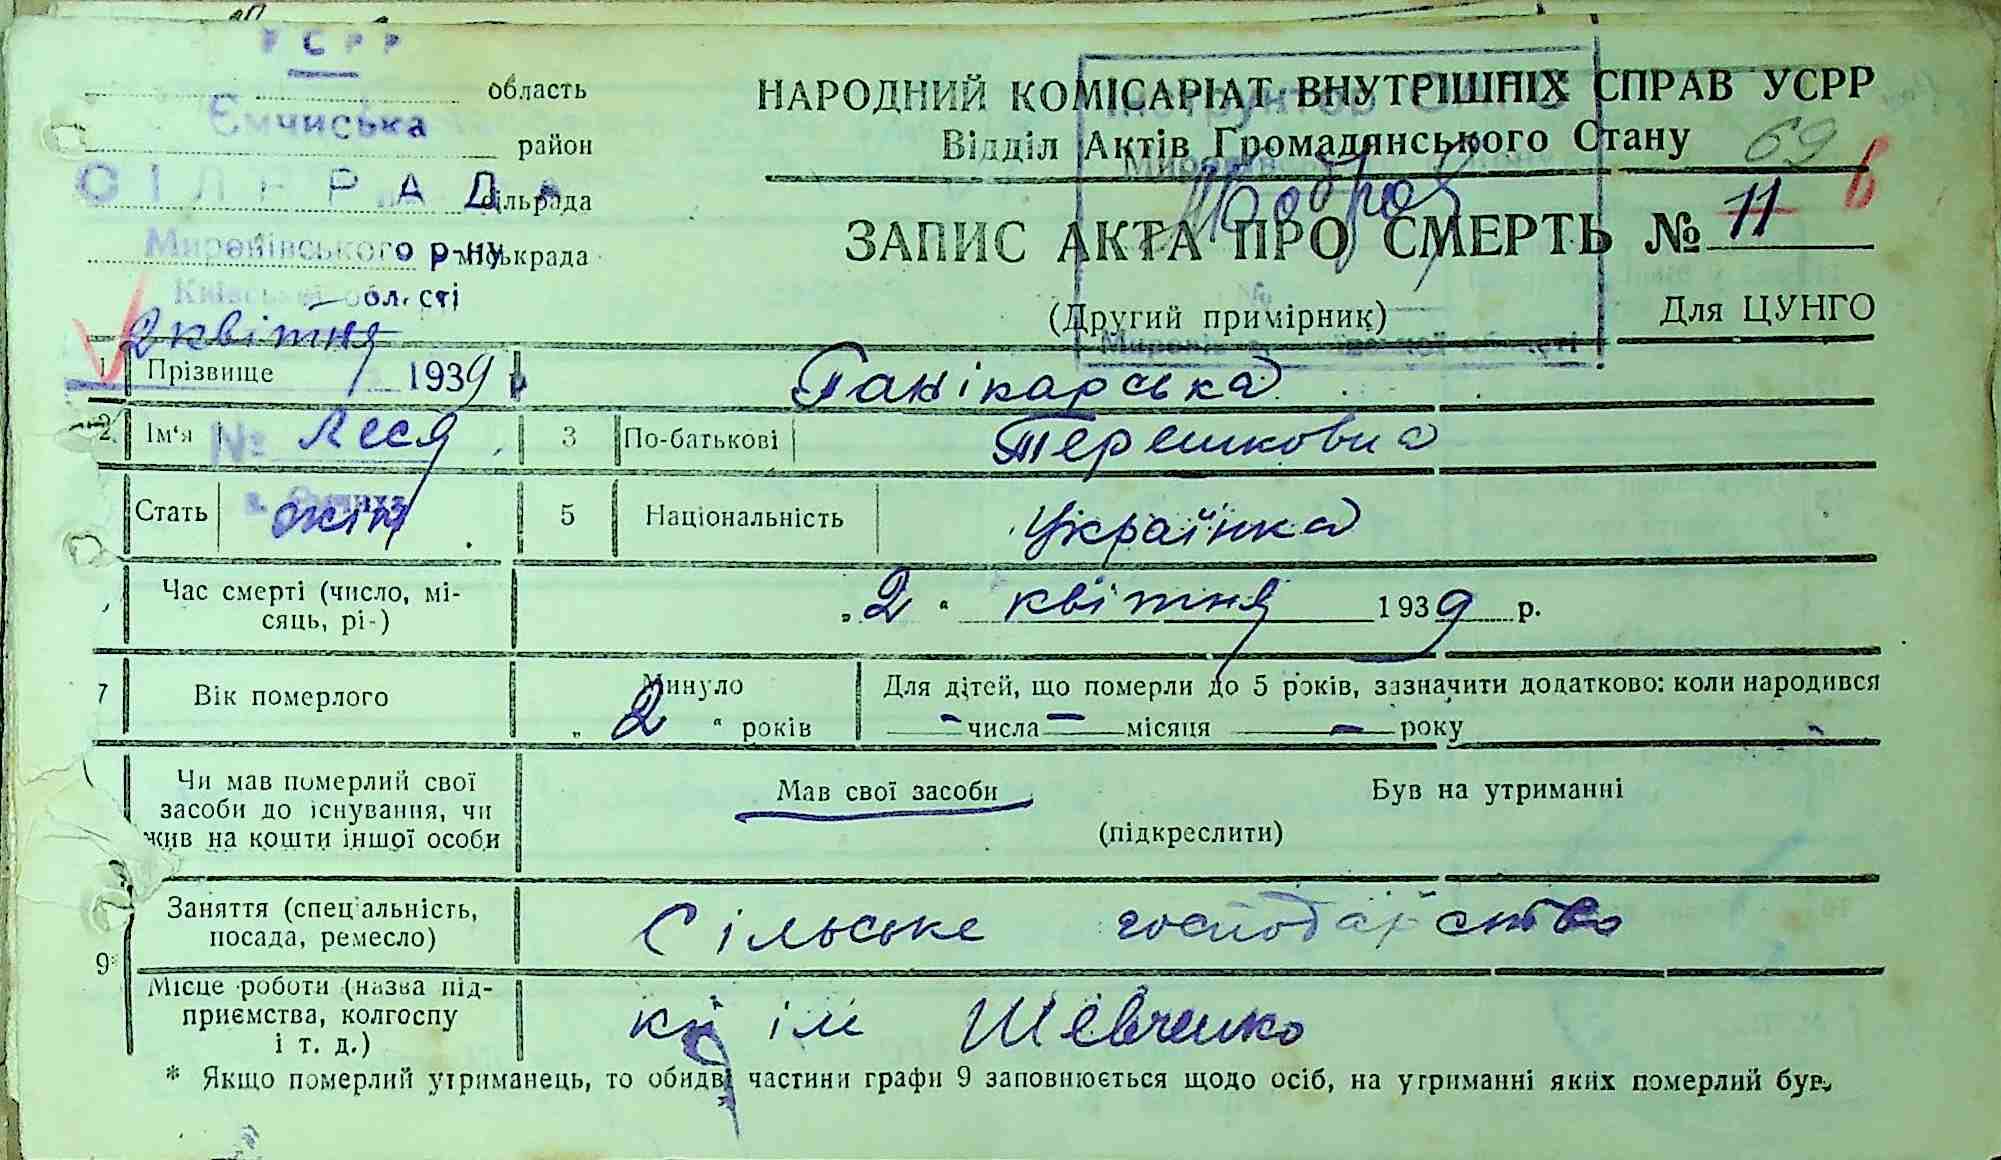 УСРР
область
Ємчиська
район
СІЛЬРАДА
сільрада
Миронівського р-ну
міськрада
Київської області
2 квітня
1939
№
НАРОДНИЙ КОМІСАРІАТ ВНУТРІШНІХ СПРАВ УСРР
Відділ Актів Громадянського Стану
69
ЗАПИС АКТА ПРО СМЕРТЬ № 11 6
(Другий примірник) Для ЦУНГО
1 Прізвище Ганікарська
2 Ім‘я Леся 3 По-батькові Терешковна
Стать жін 5 Національність Українка
Час смерті (число, мі-
сяць, рі-) „2“ квітня 1939 р.
7 Вік померлого Минуло
„2“ років
Для дітей, що померли до 5 років, зазначити додатково: коли народився
– числа – місяця – року
Чи мав померлий свої
засоби до існування, чи
жив на кошти іншої особи
Мав свої засоби Був на утриманні
(підкреслити)
9* Заняття (спеціальність,
посада, ремесло) Сільське господарство
Місце роботи (назва під-
приємства, колгоспу
і т. д.) ім Шевченко
* Якщо померлий утриманець, то обидві частини графи 9 заповнюється щодо осіб, на утриманні яких померлий був.